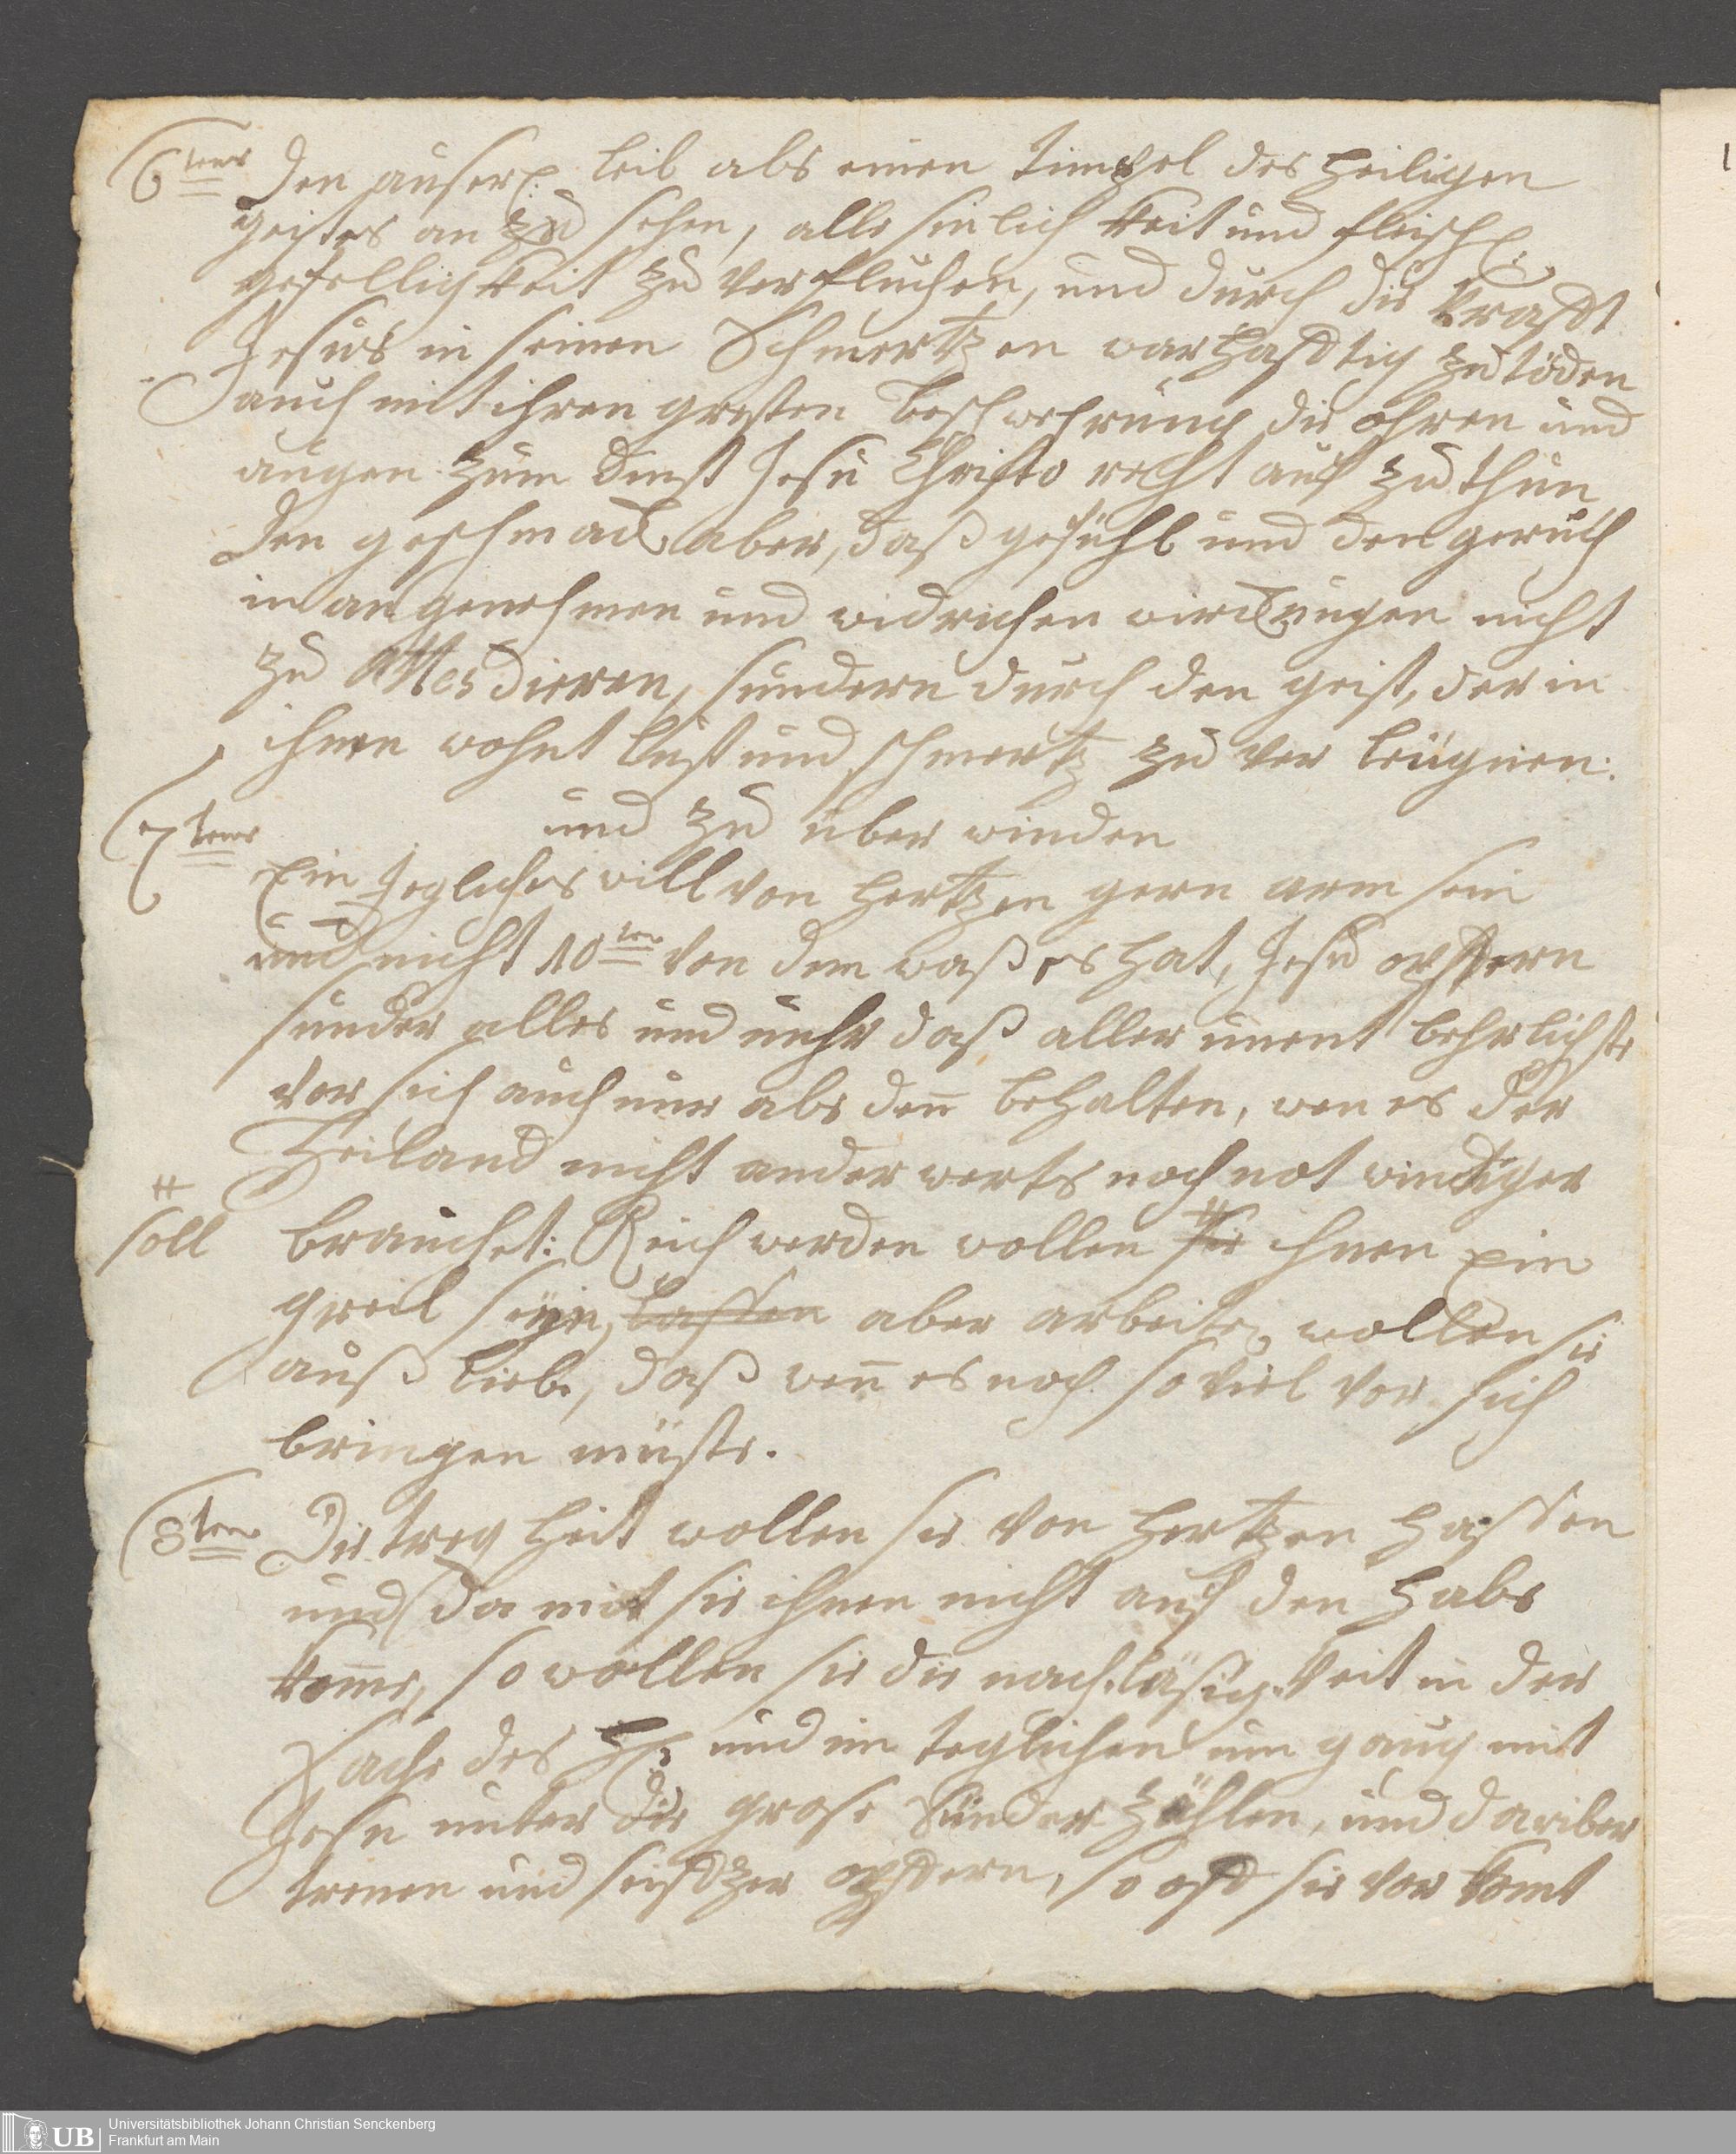 6tens Den äuserl: leib als einen Timpel des Heiligen
geistes an zu sehen, alle sinlich keit und fleischl:
gefellichkeit zu verfluchen, und durch die krafft
Jesus in seinen Schmertzen warhafftig zu töden
auch mit ihren gresten beschwehrung die ohren und
augen zum dinst Jesu Christo recht auf zu thun
Den geschmack aber, daß gefühl und den geruch
in angenehmen und widrichen wirckungen nicht
zu dieren, sundern durch den geist, der in
ihnen wohnt lust und schmertz zu ver leugnen.
und zu über winden
7tens
Ein Jegliches will von Hertzen gern arm sein
und nicht 10ten von dem waß es hat, Jesu opffern
sunder alles und mehr daß aller unent behrlichste
vor sich auch nur als den behalten, wen es der
Heiland nicht ander werts noch not windiger
#
soll brauchet: Reich werden wollen # sie ihnen ein
greil seyn, lassen aber arbeiten wollen sie
auß liebe, daß wen es noch so viel vor sich
bringen müste.
8tens Die treg heit wollen sie von Hertzen hassen
und da mit sie ihnen nicht auf den Hals
kome, so wollen sie die nach läsig keit in der
sache des H: und im teglichen um gang mit
Jesu unter die grose Sünden zählen, und dariber
trenen und seifftzer opffern, so offt sie vor komt
Universitätsbibliothek Johann Christian Senckenberg
UB
Frankfurt am Main